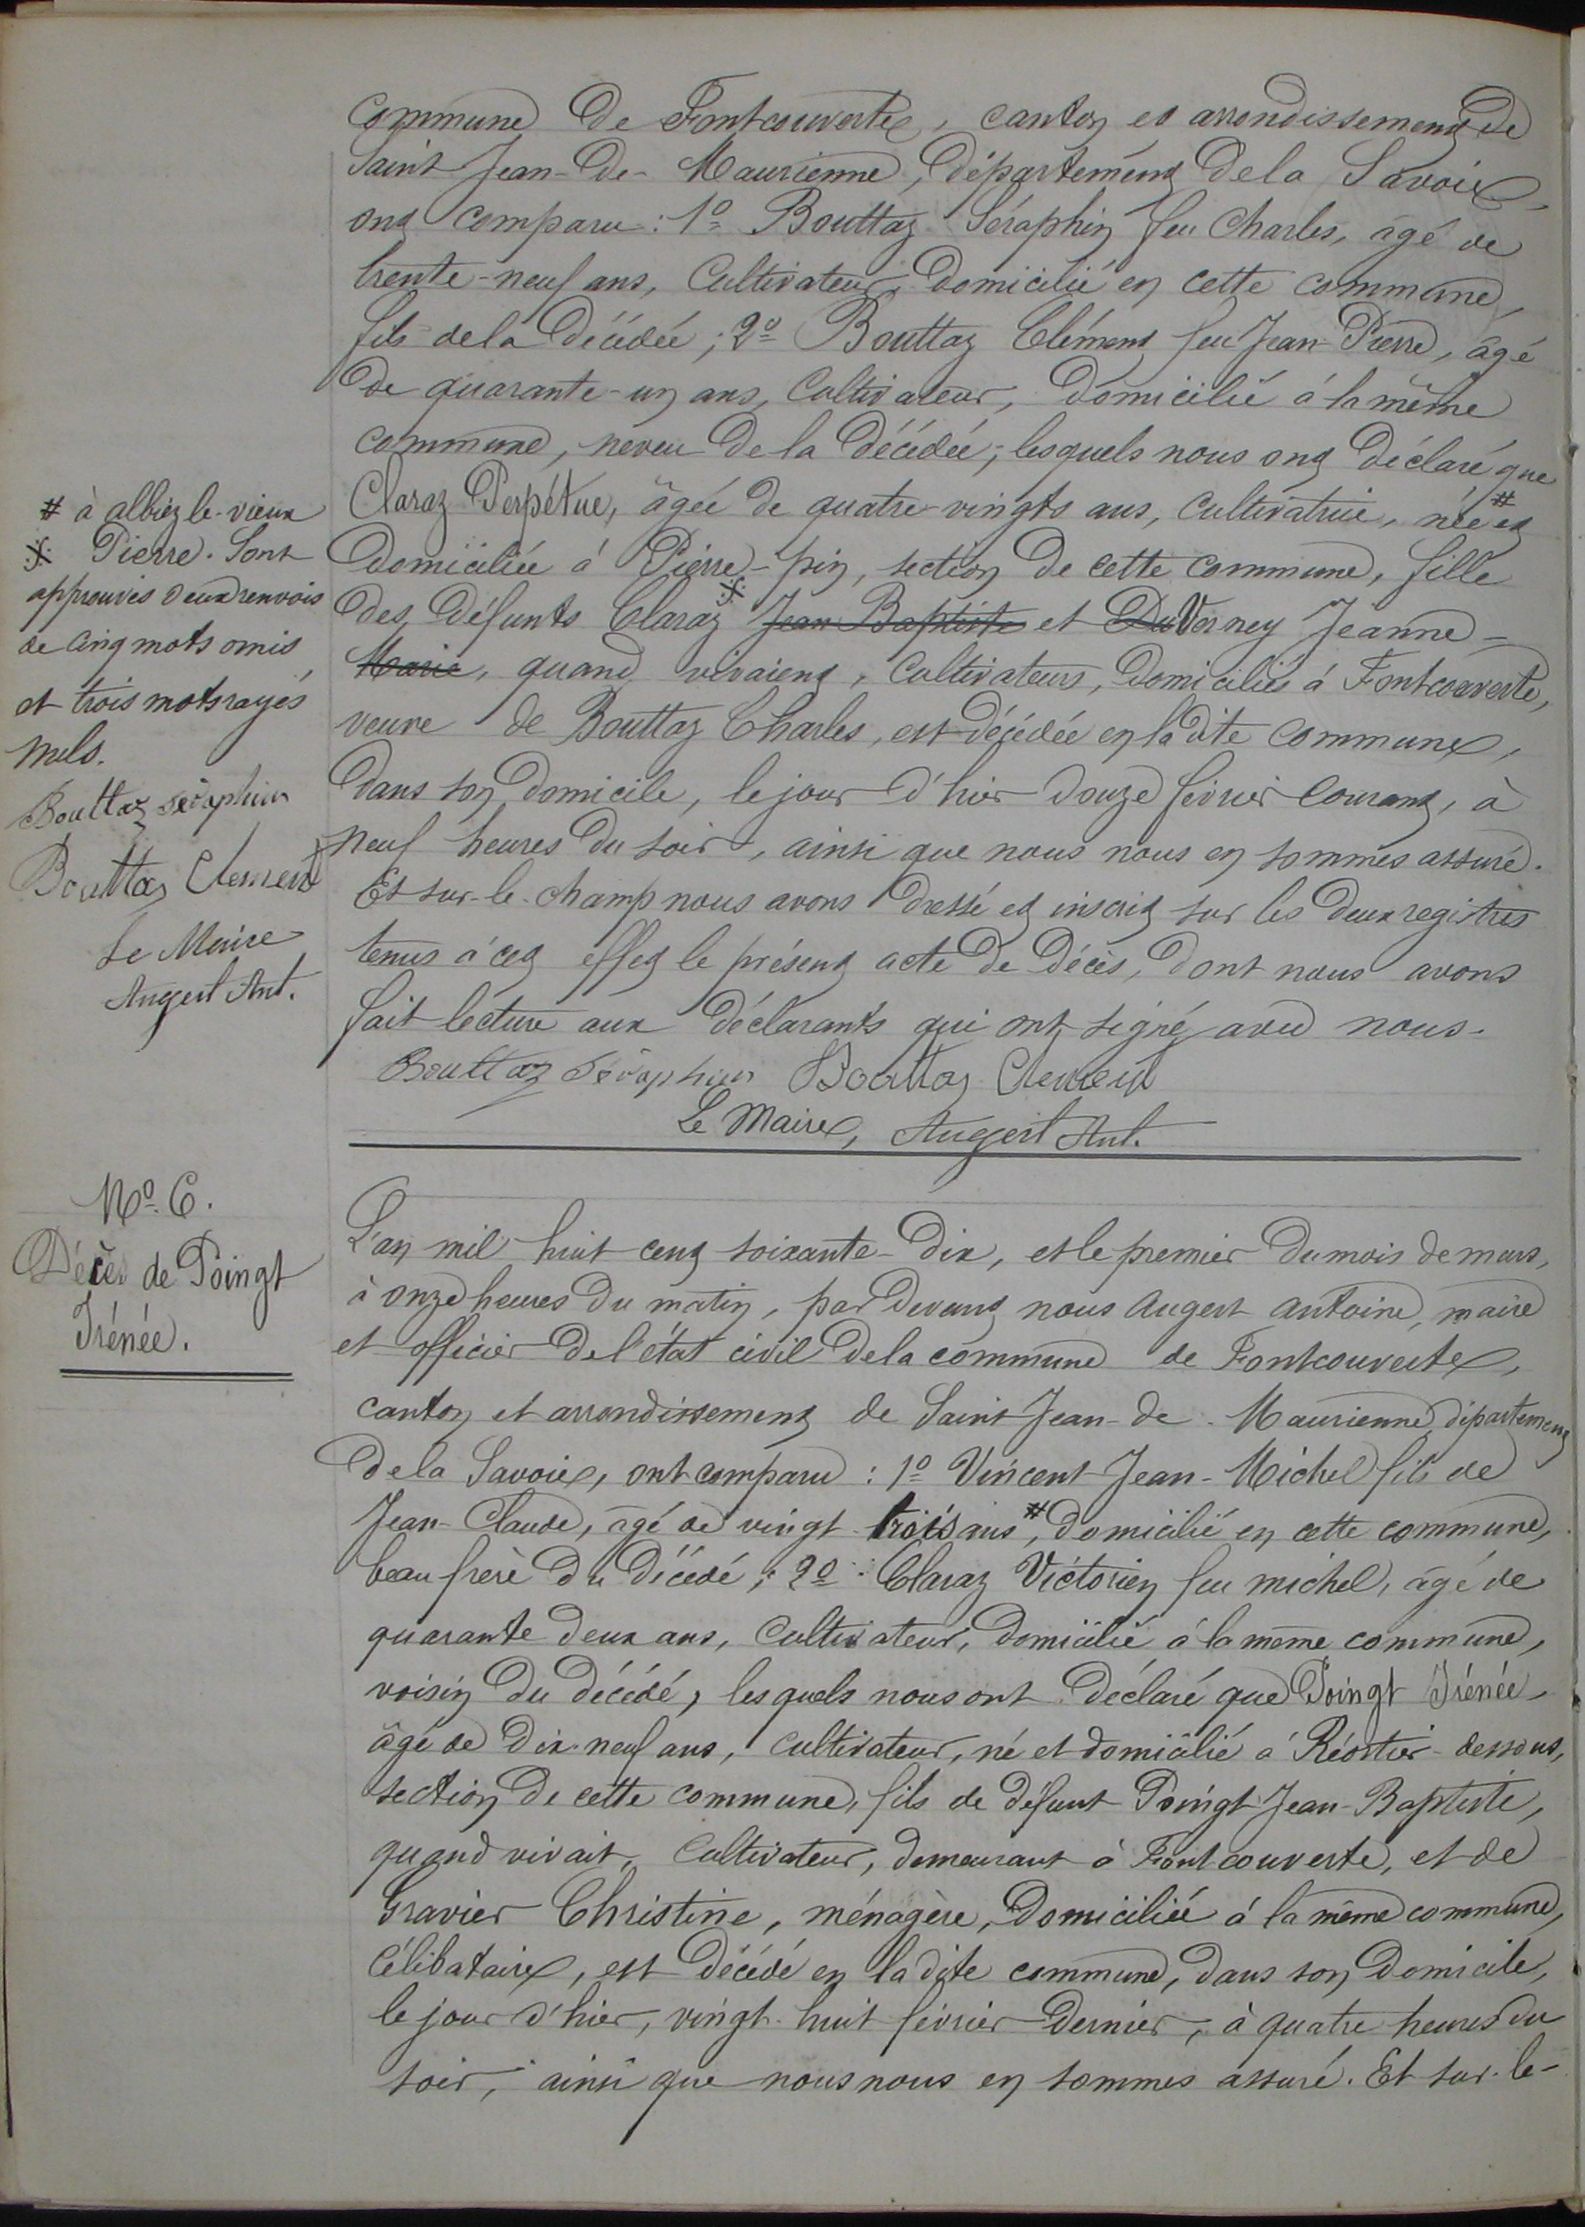 commune de Fontcouverte, canton et arrondissement de
Saint Jean-de-Maurienne, département de la Savoie,
ont comparu : 1º Bouttaz Séraphin feu Charles, âgé de
trente-neuf ans, Cultivateur, domicilié en cette commune,
fils de la décédée ; 2º Bouttaz Clément feu Jean-Pierre, âgé
de quarante-un ans, Cultivateur, domicilié à la même
commune, neveu de la décédée ; lesquels nous ont déclaré que
Claraz Perpétue, âgée de quatre-vingts ans, cultivatrice, née # et
domiciliée à Pierre-pin, section de cette commune, fille
des défunts Claraz ※ Jean Baptiste et Du Verney Jeanne-
Marie, quand vivaient, Cultivateurs, domiciliés à Fontcouverte,
veuve de Bouttaz Charles, est décédée en la dite commune,
dans son domicile, le jour d'hier douze février courant, à
neuf heures du soir, ainsi que nous nous en sommes assuré.
Et sur-le-champ nous avons dressé et inscrit sur les deux registres
tenus à cet effet le présent acte de décès, dont nous avons
fait lecture aux déclarants qui ont signé avec nous.
Bouttaz Séraphin Bouttaz Clement
Le Maire, Augert Ant.
# à albiez-le-vieux
※ Pierre. Sont
approuvés deux renvois
de cinq mots omis,
et trois mots rayés
nuls.
Bouttaz Séraphin
Bouttaz Clement
Le Maire
Augert Ant.
Nº. 6.
Décès de Poingt
Irénée.
L'an mil huit cent soixante-dix, et le premier du mois de mars,
à onze heures du matin, par devant nous Augert antoine, maire
et officier de l'état civil de la commune de Fontcouverte,
canton et arrondissement de Saint Jean-de-Maurienne, département
de la Savoie, ont comparu : 1º Vincent Jean-Michel fils de
Jean-Claude, âgé de vingt-trois ans #, domicilié en cette commune,
beau frère du décédé ; 2º Claraz Victorien feu michel, âgé de
quarante deux ans, Cultivateur, domicilié à la même commune,
voisin du décédé, lesquels nous ont déclaré que Poingt Irénée,
âgé de dix-neuf ans, cultivateur, né et domicilié à Réortier-dessous,
section de cette commune, fils de défunt Poingt Jean-Baptiste,
quand vivait, Cultivateur, demeurant à Fontcouverte, et de
Gravier Christine, ménagère, domiciliée à la même commune,
Célibataire, est décédé en la dite commune, dans son domicile,
le jour d'hier, vingt-huit février dernier, à quatre heures du
soir, ainsi que nous nous en sommes assuré. Et sur-le-